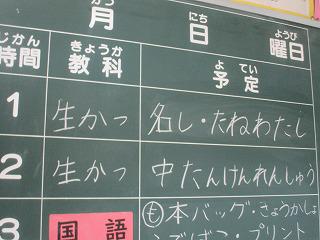 がつ にち ようび
月 日 曜日
じかん きょうか よてい
時間 教科 予定
1 生かつ 名し・たねわたし
2 生かつ 中たんけんれんしゅう
3 国語 も本バッグ・きょうかしょ
プリント